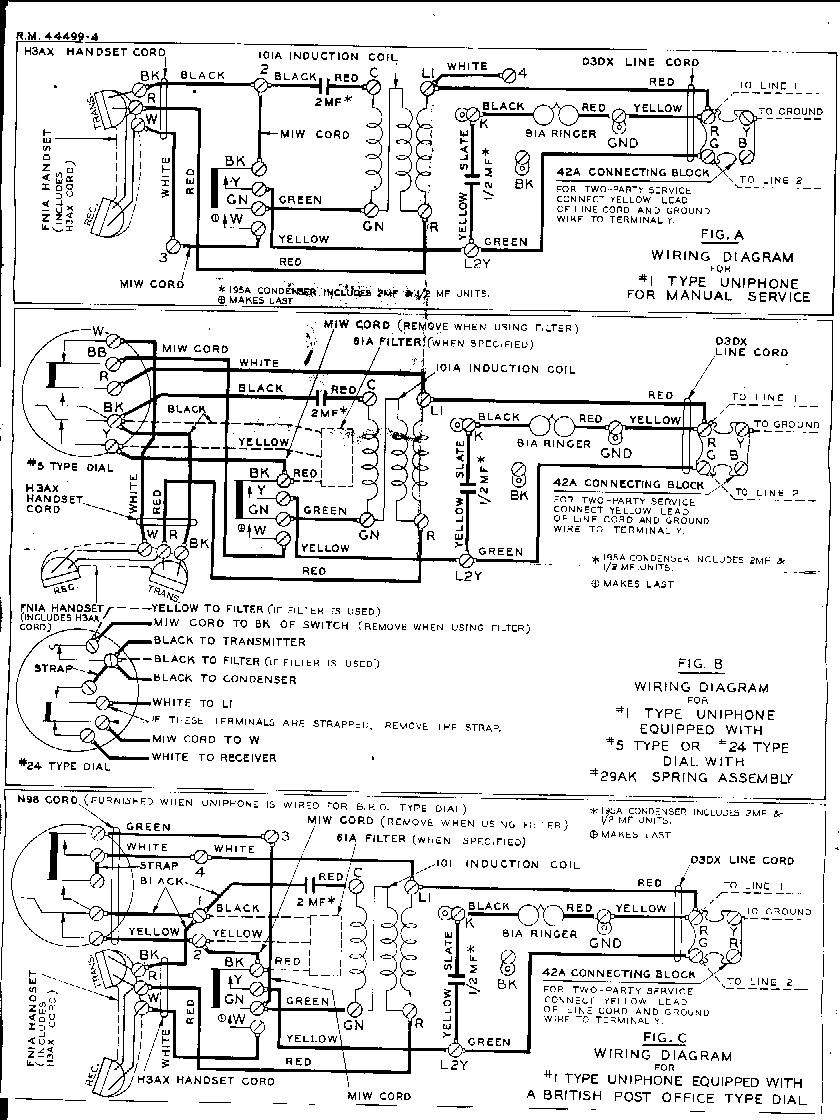 R.M. 44499-4
H3AX HANDSET CORD
101A INDUCTION COIL
D3DX LINE CORD
BK
BLACK
2
BLACK
RED
C
L1
WHITE
4
RED
TO LINE 1
TRANS.
R
W
2MF*
K
BLACK
RED
YELLOW
TO GROUND
MIW CORD
81A RINGER
GND
R
Y
G
B
FNIA HANDSET
(INCLUDES
H3AX CORD)
WHITE
RED
BK
Y
GN
⊕W
GREEN
SLATE
1/2 MF*
YELLOW
BK
42A CONNECTING BLOCK
TO LINE 2
FOR TWO-PARTY SERVICE
CONNECT YELLOW LEAD
OF LINE CORD AND GROUND
WIRE TO TERMINAL Y.
REC.
GN
R
3
YELLOW
RED
GREEN
L2Y
MIW CORD
* 195A CONDENSER INCLUDES 2MF & 1/2 MF UNITS.
⊕ MAKES LAST
FIG. A
WIRING DIAGRAM
FOR
#1 TYPE UNIPHONE
FOR MANUAL SERVICE
MIW CORD (REMOVE WHEN USING FILTER)
61A FILTER (WHEN SPECIFIED)
D3DX
LINE CORD
W
BB
R
BK
MIW CORD
WHITE
101A INDUCTION COIL
BLACK
RED
C
L1
RED
TO LINE 1
BLACK
2MF*
K
BLACK
RED
YELLOW
TO GROUND
YELLOW
81A RINGER
GND
R
Y
G
B
#5 TYPE DIAL
BK
RED
Y
GN
⊕W
GREEN
SLATE
1/2 MF*
YELLOW
BK
42A CONNECTING BLOCK
TO LINE 2
FOR TWO-PARTY SERVICE
CONNECT YELLOW LEAD
OF LINE CORD AND GROUND
WIRE TO TERMINAL Y.
H3AX
HANDSET
CORD
WHITE
RED
W
R
BK
GN
R
YELLOW
RED
GREEN
L2Y
REC.
TRANS
* 195A CONDENSER INCLUDES 2MF &
1/2 MF. UNITS.
⊕ MAKES LAST
FNIA HANDSET
(INCLUDES H3AX
CORD)
YELLOW TO FILTER (IF FILTER IS USED)
MIW CORD TO BK OF SWITCH (REMOVE WHEN USING FILTER)
BLACK TO TRANSMITTER
BLACK TO FILTER (IF FILTER IS USED)
STRAP
BLACK TO CONDENSER
WHITE TO L1
IF THESE TERMINALS ARE STRAPPED, REMOVE THE STRAP.
MIW CORD TO W
WHITE TO RECEIVER
#24 TYPE DIAL
FIG. B
WIRING DIAGRAM
FOR
#1 TYPE UNIPHONE
EQUIPPED WITH
#5 TYPE OR #24 TYPE
DIAL WITH
#29AK SPRING ASSEMBLY
N9B CORD (FURNISHED WHEN UNIPHONE IS WIRED FOR B.P.O. TYPE DIAL)
MIW CORD (REMOVE WHEN USING FILTER)
61A FILTER (WHEN SPECIFIED)
* 195A CONDENSER INCLUDES 2MF &
1/2 MF UNITS.
⊕ MAKES LAST
GREEN
3
WHITE
4
WHITE
STRAP
101 INDUCTION COIL
D3DX LINE CORD
BLACK
RED
C
L1
RED
TO LINE 1
1
BLACK
2 MF*
K
BLACK
RED
YELLOW
TO GROUND
YELLOW
YELLOW
2
81A RINGER
GND
R
Y
G
R
TRANS.
BK
R
W
BK
RED
Y
GN
⊕W
GREEN
SLATE
1/2 MF*
YELLOW
BK
42A CONNECTING BLOCK
TO LINE 2
FOR TWO-PARTY SERVICE
CONNECT YELLOW LEAD
OF LINE CORD AND GROUND
WIRE TO TERMINAL Y.
FNIA HANDSET
(INCLUDES
H3AX CORD)
RED
WHITE
GN
R
YELLOW
RED
GREEN
L2Y
REC.
H3AX HANDSET CORD
MIW CORD
FIG. C
WIRING DIAGRAM
FOR
#1 TYPE UNIPHONE EQUIPPED WITH
A BRITISH POST OFFICE TYPE DIAL